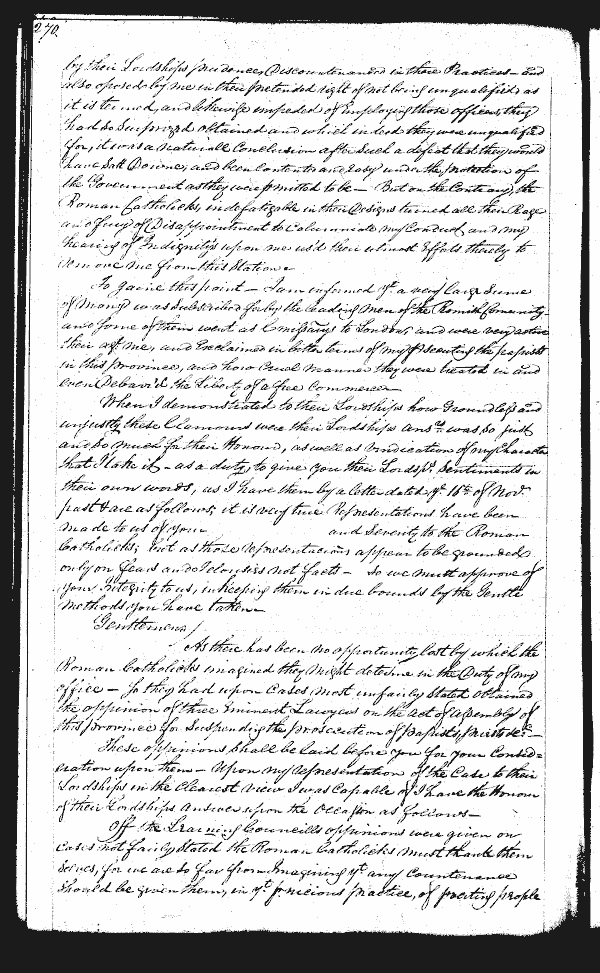 270.
by their Lordships prudence, Discountenanced in those Practices - and
also oposed by me in their pretended right of not being unqualified as
it is termed, and likewise impeded of Employing those offices, they
had so Surprized obtained and which indeed they were unqualified
for, it was a naturall Conclusion after such a defeat that they would
have Satt Downe, and been Content and Easy under the protection of
the Government as they were permitted to be - But on the Contrary, the
Roman Catholicks, indefatigable in their Designs turned all their Rage
and fury of Disappointment to Calumniate my Conduct, and my
hearing of Indignitys upon me, us'd their utmost Efforts thereby to
remove me from this Station.
To gaine this point - I am informed yt. a very large Sume
of Mony was Subscribed for by the leading Men of the Romish Comunity
and some of them went as Emissarys to London, and were very active
their agt. me, and Exclaimed in bitter terms of my Persecuting the papists
in this province, and how Cruel manner they were treated in and
even Debarr'd the Liberty of a free Commerce
When I demonstrated to their Lordships how Groundless and
unjustly these Clamours were their Lordships ansr. was, so just
and so much for their Honour, as well as Vindication of my Character
that I take it - as a duty to give you their Lordsps. Sentiments in
their own words, as I have them by a letter dated ye. 16th. of Novr.
past & are as follows, it is very true Representations have been
made to us of your and Severity to the Roman
Catholicks; but as those representations appear to be grounded
only on fears and Jelousies not facts - So we must approve of
your Integrity to us, in keeping them in due bounds by the Gentle
methods you have taken -
Gentlemen /
As there has been no opportunity lost by which the
Roman Catholicks imagined they might determe in the Duty of my
office - So they had upon Cases most unfairly Stated Obtained
the oppinion of three Eminent Lawyers on the act of Assembly of
this province for Suspending the prosecution of papists, priests &c. -
These oppinions Shall be laid before you for your Consid=
eration upon them - Upon my representation of the Case to their
Lordships in the Clearest View I was Capable of I have the Honour
of their Lordships Answer upon the Occasion as follows -
Off the Learning Councills oppinions were given on
Cases not fairly Stated the Roman Catholicks must thank them
Selves, for we are so far from Imagining yt. any Countenance
Should be given them, in yt. pernicious practice, of perverting people